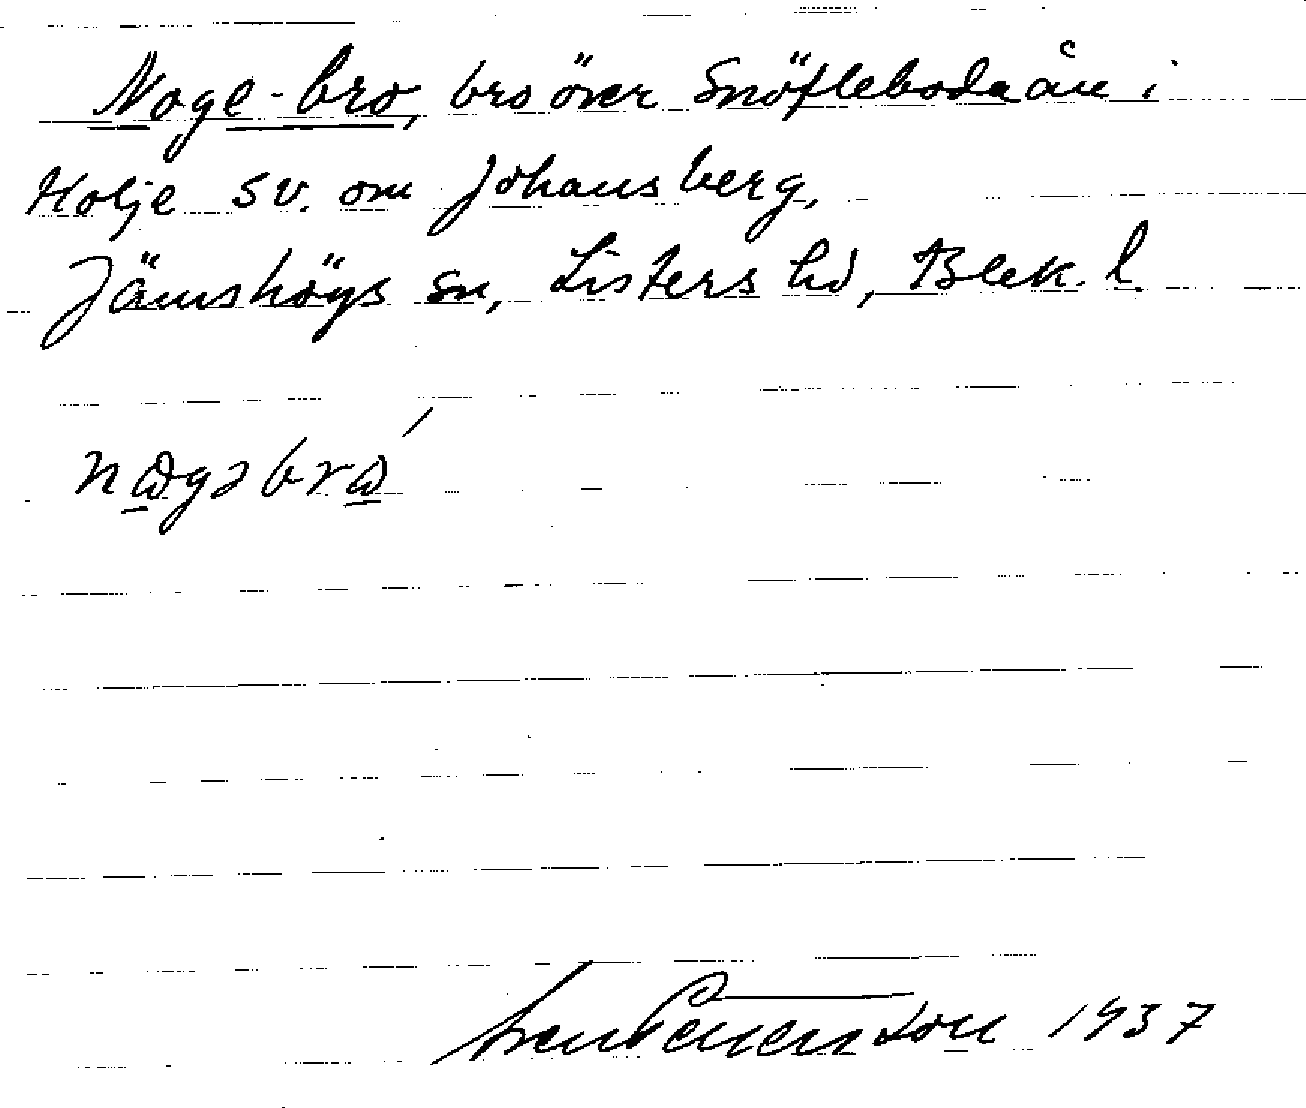 Noge-bro, bro över Snöflebodaån i
Holje sv. om Johansberg,
Jämshögs sn, Listers hd, Blek. l.
nωgəbrω´
1937